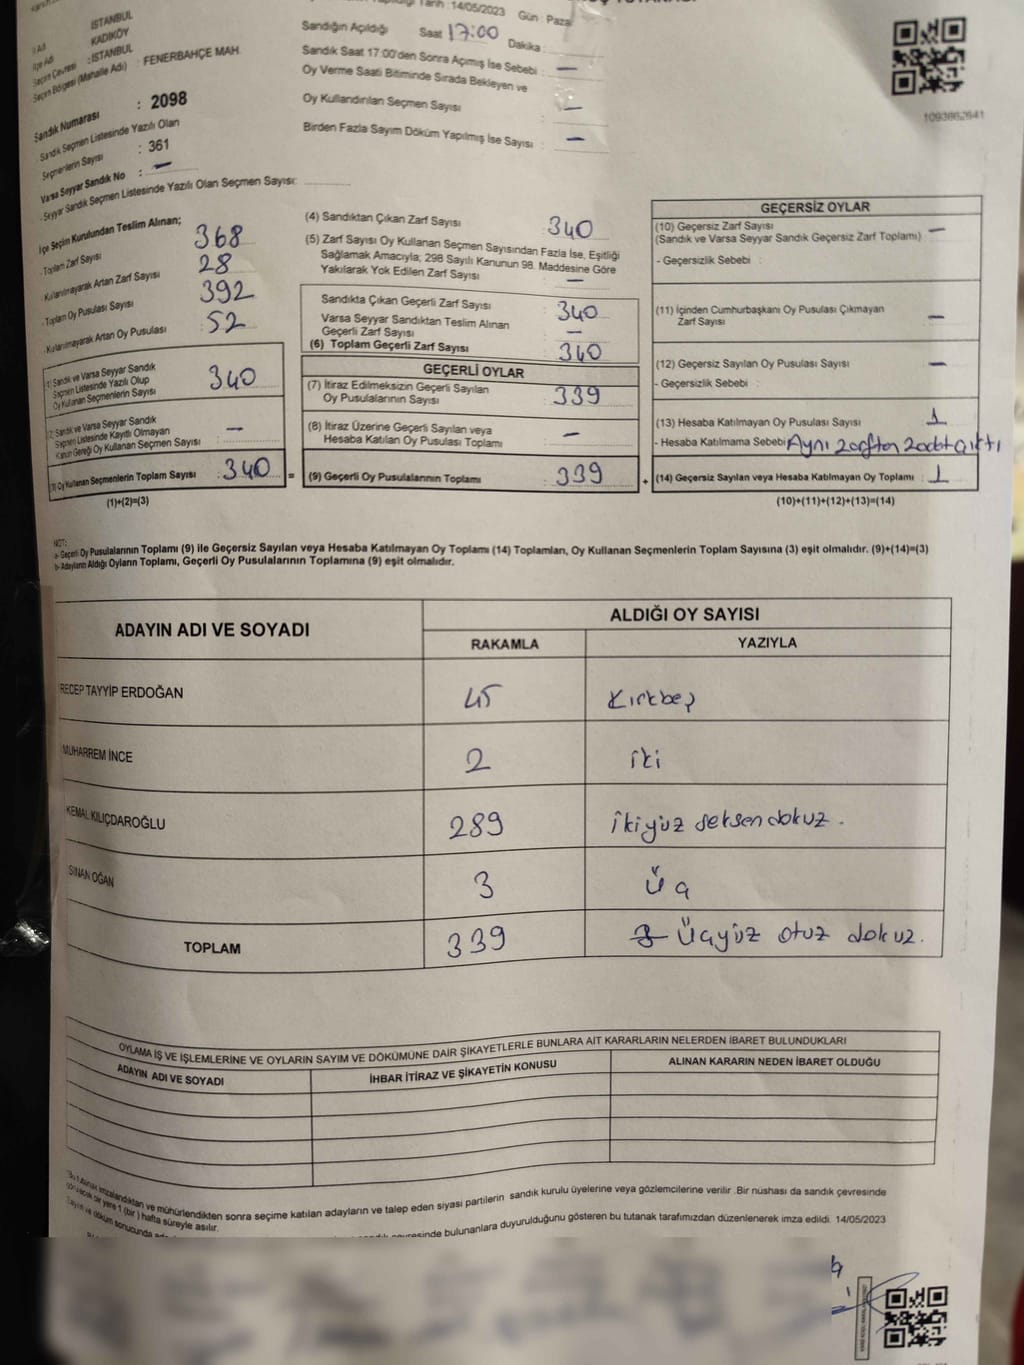 Tarih : 14/05/2023 Gün : Pazar
İSTANBUL
KADIKÖY
Seçim Çevresi : İSTANBUL
Seçim Bölgesi (Mahalle Adı) : FENERBAHÇE MAH.
Sandık Numarası : 2098
Sandık Seçmen Listesinde Yazılı Olan
Seçmenlerin Sayısı : 361
Varsa Seyyar Sandık No : —
-Seyyar Sandık Seçmen Listesinde Yazılı Olan Seçmen Sayısı:
Sandığın Açıldığı Saat 17:00 Dakika :
Sandık Saat 17:00'den Sonra Açımış İse Sebebi : —
Oy Verme Saati Bitiminde Sırada Bekleyen ve
Oy Kullandırılan Seçmen Sayısı : —
Birden Fazla Sayım Döküm Yapılmış İse Sayısı : —
1093862641
İlçe Seçim Kurulundan Teslim Alınan;
-Toplam Zarf Sayısı 368
-Kullanılmayarak Artan Zarf Sayısı 28
-Toplam Oy Pusulası Sayısı 392
-Kullanılmayarak Artan Oy Pusulası : 52
(1) Sandık ve Varsa Seyyar Sandık
Seçmen Listesinde Yazılı Olup
Oy Kullanan Seçmenlerin Sayısı 340
(2) Sandık ve Varsa Seyyar Sandık
Seçmen Listesinde Kayıtlı Olmayan
Kanun Gereği Oy Kullanan Seçmen Sayısı : —
(3) Oy Kullanan Seçmenlerin Toplam Sayısı : 340 =
(1)+(2)=(3)
(4) Sandıktan Çıkan Zarf Sayısı 340
(5) Zarf Sayısı Oy Kullanan Seçmen Sayısından Fazla İse, Eşitliği
Sağlamak Amacıyla; 298 Sayılı Kanunun 98. Maddesine Göre
Yakılarak Yok Edilen Zarf Sayısı : —
Sandıkta Çıkan Geçerli Zarf Sayısı : 340
Varsa Seyyar Sandıktan Teslim Alınan
Geçerli Zarf Sayısı : —
(6) Toplam Geçerli Zarf Sayısı : 340
GEÇERLİ OYLAR
(7) İtiraz Edilmeksizin Geçerli Sayılan
Oy Pusulalarının Sayısı : 339
(8) İtiraz Üzerine Geçerli Sayılan veya
Hesaba Katılan Oy Pusulası Toplamı : —
(9) Geçerli Oy Pusulalarının Toplamı : 339 +
GEÇERSİZ OYLAR
(10) Geçersiz Zarf Sayısı : —
(Sandık ve Varsa Seyyar Sandık Geçersiz Zarf Toplamı)
- Geçersizlik Sebebi :
(11) İçinden Cumhurbaşkanı Oy Pusulası Çıkmayan
Zarf Sayısı : —
(12) Geçersiz Sayılan Oy Pusulası Sayısı : —
- Geçersizlik Sebebi :
(13) Hesaba Katılmayan Oy Pusulası Sayısı : 1
- Hesaba Katılmama Sebebi : Aynı zarftan 2 adet çıktı
(14) Geçersiz Sayılan veya Hesaba Katılmayan Oy Toplamı : 1
(10)+(11)+(12)+(13)=(14)
NOT:
a- Geçerli Oy Pusulalarının Toplamı (9) ile Geçersiz Sayılan veya Hesaba Katılmayan Oy Toplamı (14) Toplamları, Oy Kullanan Seçmenlerin Toplam Sayısına (3) eşit olmalıdır. (9)+(14)=(3)
b- Adayların Aldığı Oyların Toplamı, Geçerli Oy Pusulalarının Toplamına (9) eşit olmalıdır.
ADAYIN ADI VE SOYADI ALDIĞI OY SAYISI
RAKAMLA YAZIYLA
RECEP TAYYİP ERDOĞAN 45 Kırkbeş
MUHARREM İNCE 2 İki
KEMAL KILIÇDAROĞLU 289 İkiyüz seksen dokuz.
SİNAN OĞAN 3 Üç
TOPLAM 339 Üçyüz otuz dokuz.
OYLAMA İŞ VE İŞLEMLERİNE VE OYLARIN SAYIM VE DÖKÜMÜNE DAİR ŞİKAYETLERLE BUNLARA AİT KARARLARIN NELERDEN İBARET BULUNDUKLARI
ADAYIN ADI VE SOYADI İHBAR İTİRAZ VE ŞİKAYETİN KONUSU ALINAN KARARIN NEDEN İBARET OLDUĞU
Bu tutanak imzalandıktan ve mühürlendikten sonra seçime katılan adayların ve talep eden siyasi partilerin sandık kurulu üyelerine veya gözlemcilerine verilir .Bir nüshası da sandık çevresinde
görülecek bir yere 1 (bir) hafta süreyle asılır.
Sayım ve döküm sonucunda bulunanlara duyurulduğunu gösteren bu tutanak tarafımızdan düzenlenerek imza edildi. 14/05/2023